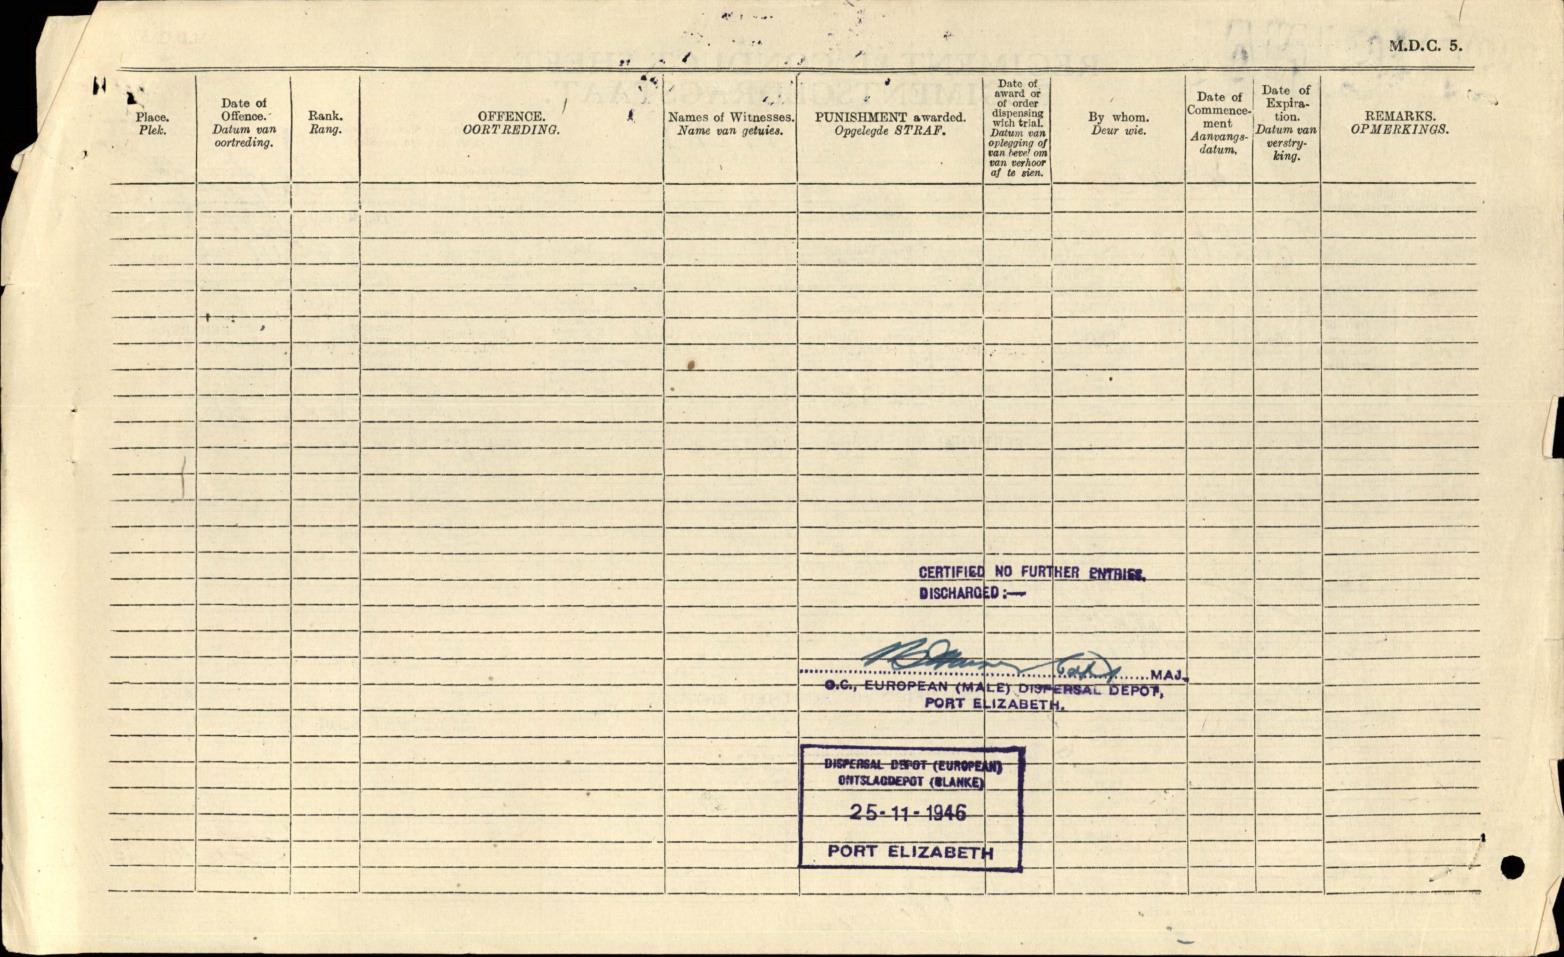 M.D.C. 5.
Place.
Plek.
Date of
Offence.
Datum van
oortreding.
Rank.
Rang.
OFFENCE.
OORTREDING.
Names of Witnesses.
Name van getuies.
PUNISHMENT awarded.
Opgelegde STRAF.
Date of
award or
of order
dispensing
with trial.
Datum van
oplegging of
van bevel om
van verhoor
af te sien.
By whom.
Deur wie.
Date of
Commence-
ment
Aanvangs-
datum.
Date of
Expira-
tion.
Datum van
verstry-
king.
REMARKS.
OPMERKINGS.
CERTIFIED NO FURTHER ENTRIES.
DISCHARGED :—
MAJ.
O.C., EUROPEAN (MALE) DISPERSAL DEPOT,
PORT ELIZABETH.
DISPERSAL DEPOT (EUROPEAN)
ONTSLAGDEPOT (BLANKE)
25-11-1946
PORT ELIZABETH